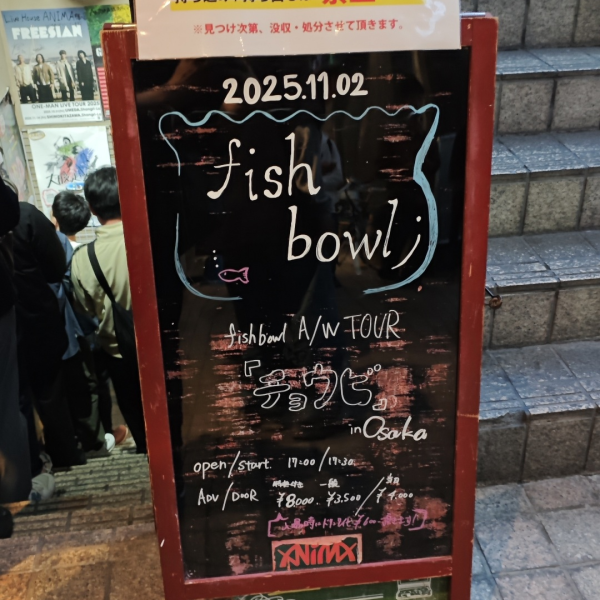 Live House ANIMA
FREESIAN
ONE-MAN LIVE TOUR 2025
※見つけ次第、没収・処分させて頂きます。
2025.11.02
fish
bowl
fishbowl A/W TOUR
『チョウビ』
in Osaka
open/start 17:00/17:30
ADV/DOOR ¥8,000 一般 ¥3,500/¥4,000
ANIMA